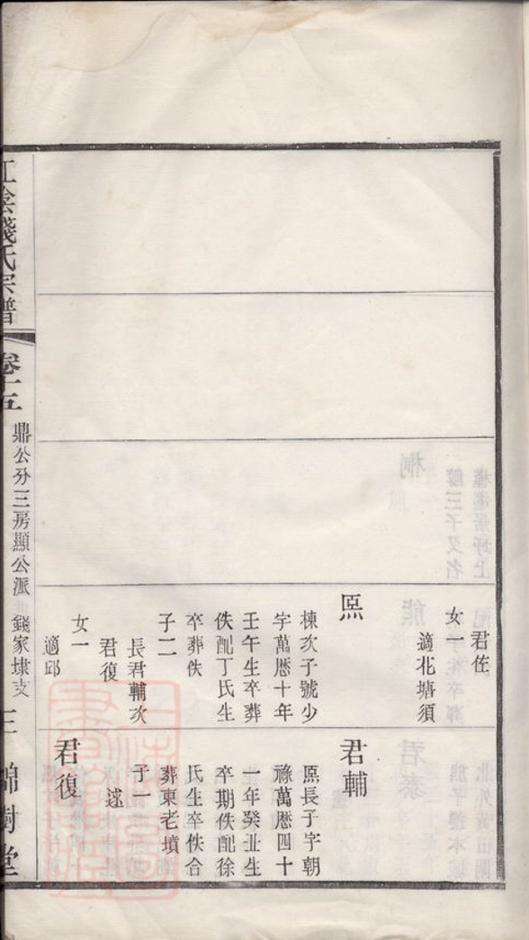 君佐
女一
適花塘須
煕
棟次子號少
宇萬曆十年
壬午生卒葬
佚配丁氏生
卒葬佚
子二
長君輔次
君復
女一
適邱
君輔
煕長子字朝
祿萬曆四十
一年癸丑生
卒期佚配徐
氏生卒佚合
葬東老墳
子一
述
君復
江陰錢氏宗譜
卷十五
鼎公分三房顯公派
錢家埭支
三
錦樹堂